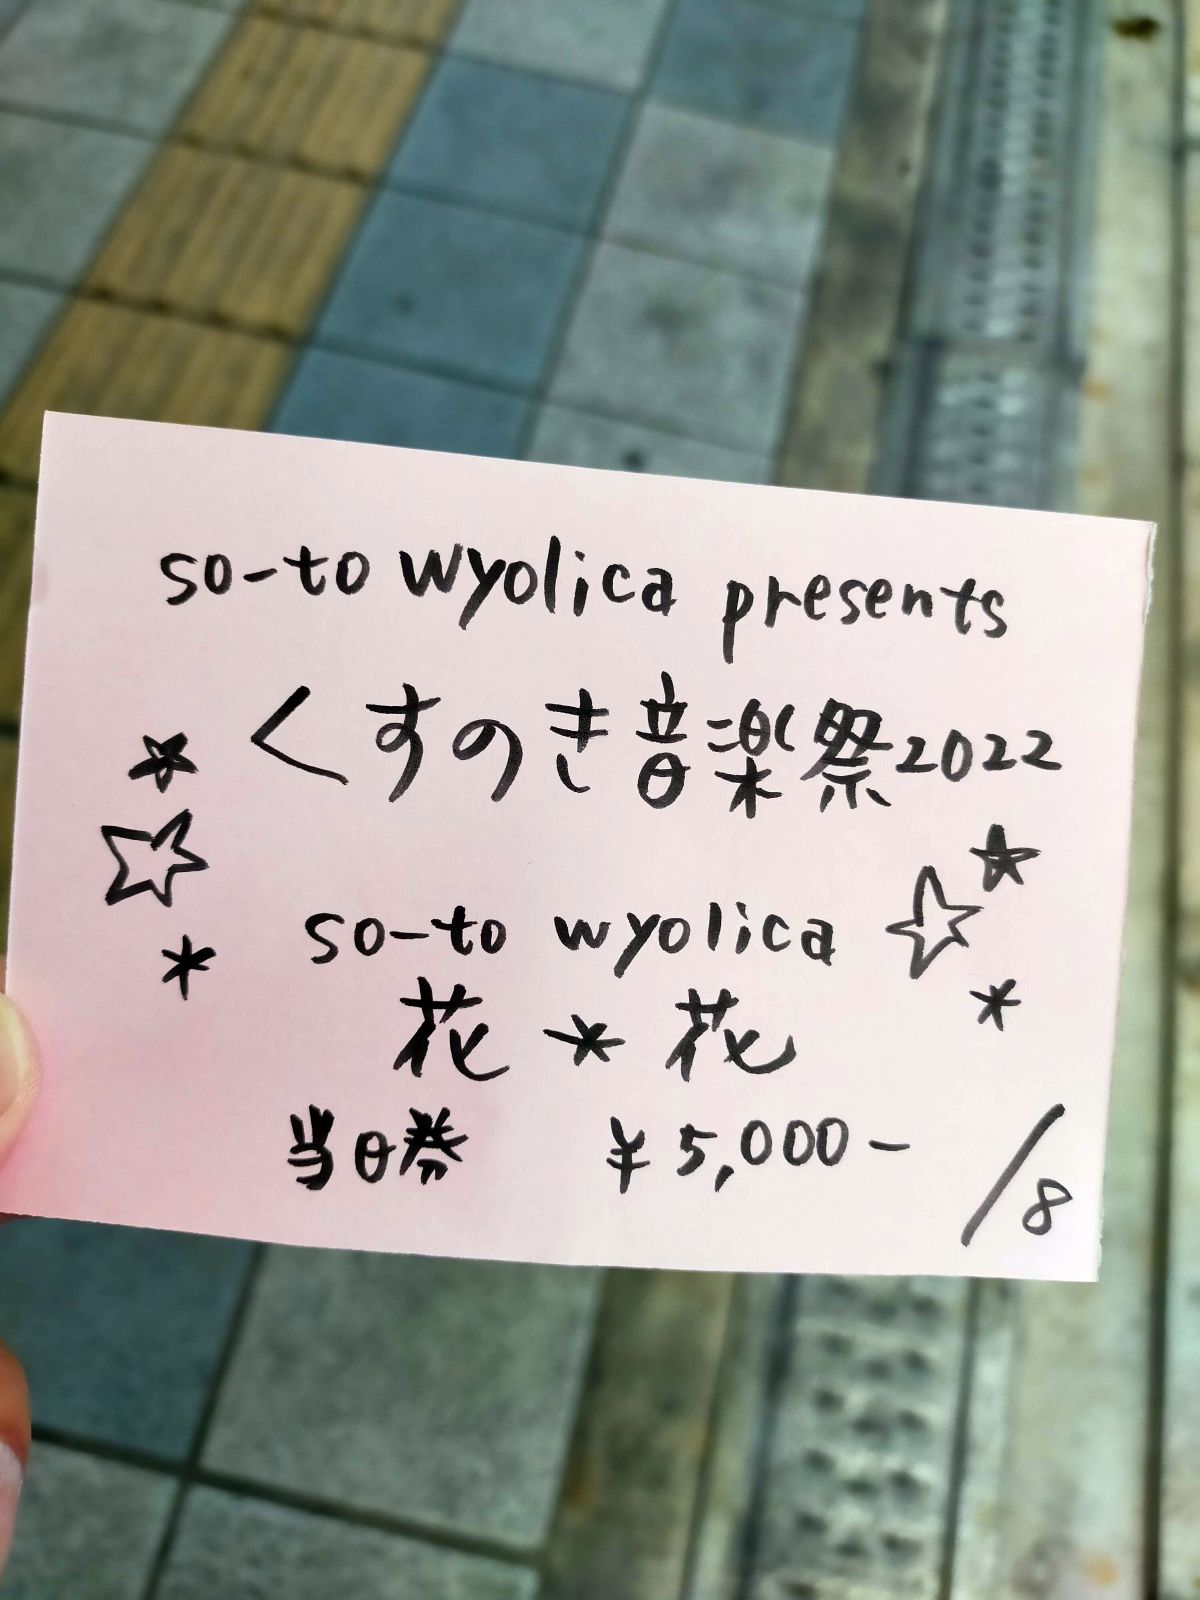 so-to wyolica presents
くすのき音楽祭2022
so-to wyolica
花*花
当日券 ¥5,000-
/8